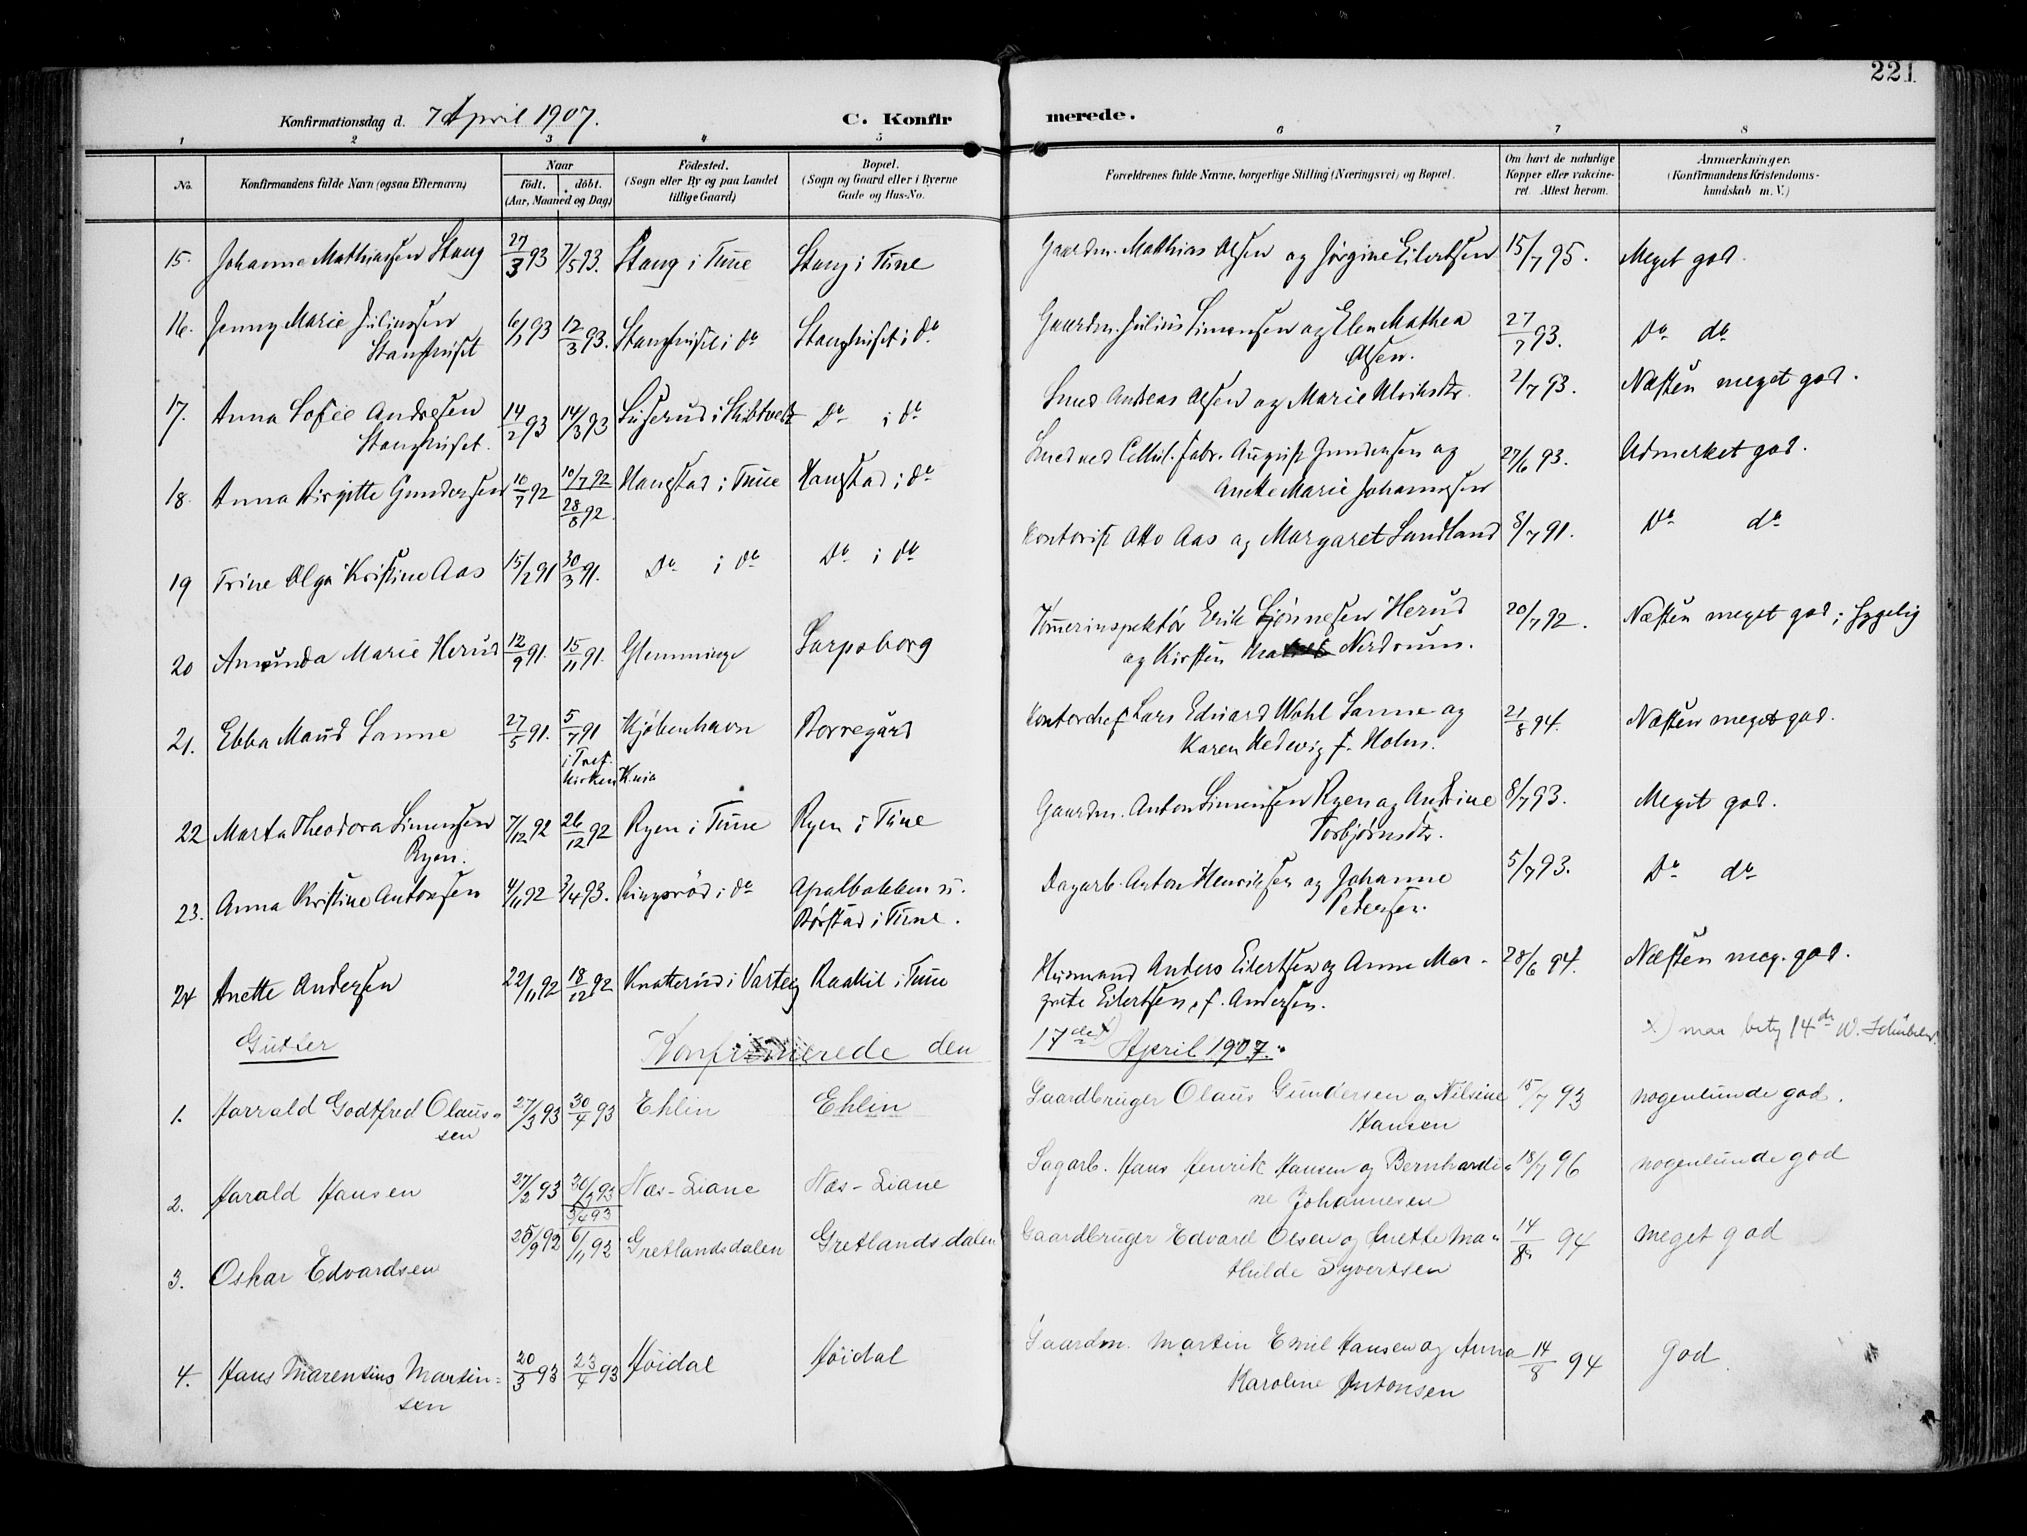 221.
Konfirmationsdag d. 7 April 1907. C. Konfirmerede.
1 2 3 4 5 6 7 8
No. Konfirmandens fulde Navn (ogsaa Efternavn) Naar født. døbt. (Aar, Maaned og Dag) Födested. (Sogn eller By og paa Landet tillige Gaard) Bopæl. (Sogn og Gaard eller i Byerne Gade og Hus-No. Forældrenes fulde Navne, borgerlige Stilling (Næringsvei) og Bopæl. Om havt de naturlige Kopper eller vakcineret. Attest herom. Anmærkninger. (Konfirmandens Kristendomskundskab m. V.)
15. Johanne Mathiassen Stang 27/3 93 7/5 93. Stang i Tune Stang i Tune Gaardm. Matthias Olsen og Jørgine Eilertsen 15/7 95. Meget god.
16. Jenny Marie Juliussen 6/1 93 12/3 93. Stanghuset i do Stanghuset i do Gaardm. Julius Simensen og Elen Mathea 27/7 93. Do do
Stanghuset Olsen.
17. Anna Sofie Andresen 14/2 93 14/3 93 i Skibtvedt Do i do Smed Andreas Olsen og Marie Ulriksdtr. 2/7 93. Næsten meget god.
Stanghuset.
18. Anna Birgitte Gundersen 10/7 92 10/7 92 Haugstad i Tune Haugstad i do Smed ved Cellul. fabr. August Gundersen og 27/6 93. Udmerket god.
28/8 92. Anette Marie Johannesen
19 Trine Olga Kristine Aas 15/2 91 30/3 91. Do i do Do i do Kontorist Otto Aas og Margaret Sandland 8/7 91. Do do
20 Amunda Marie Herud 12/9 91. 15/11 91. Glemminge Sarpsborg Tømerinspektør Erik Herud 20/7 92. Næsten meget god; sygelig
og Kirsten Nerdrum.
21. Ebba Maud Sanne 27/5 91. 5/7 91 Kjøbenhavn Borregård Kontorchef Lars Edvard Wahl Sanne og 21/8 94. Næsten meget god.
i Tref. kirken Karen Hedevig f. Holm.
22 Marta Theodora Simensen 7/12 92 26/12 92 Ryen i Tune Ryen i Tune Gaardm. Anton Simensen Ryen og Andrine 8/7 93. Meget god.
Ryen. Torbjørnsdtr.
23. Anna Kristine Antonsen 4/11 92 3/4 93. Ringsrød i do Apalbakken u. Dagarb. Anton Henriksen og Johanne 5/7 93. Do do
Børstad i Tune. Pedersen.
24 Anette Andersen 22/11 92 18/12 92 Knatterud i Varteig Raakil i Tune Husmand Anders Eilertsen og Anne Mar- 28/6 94. Næsten meg. god.
grete Eilertsen, f. Andersen.
Gutter Konfirmerede den 17de x) April 1907. x) maa bety 14de W.
1. Harrald Godtfred Olaus- 27/3 93 30/4 93 Ehlin Ehlin Gaardbruger Olaus Gundersen og Nilsine 15/7 93 nogenlunde god.
sen Hansen
2. Harald Hansen 27/2 93 30/3 93 Næs-Liane Næs-Liane Sagarb. Hans Henrik Hansen og Bernhardi- 18/7 96 nogenlunde god
3/4 93 ne Johannesen
3. Oskar Edvardsen 25/9 92 6/11 92 Gretlandsdalen Gretlandsdalen Gaardbruger Edvard Olsen og Anette Ma- 14/8 94 meget god
thilde Syvertsen
4. Hans Marentius Martin- 20/3 93 23/4 93 Høidal Høidal Gaardm. Martin Emil Hansen og Anna 14/8 94 God.
sen Karoline Antonsen